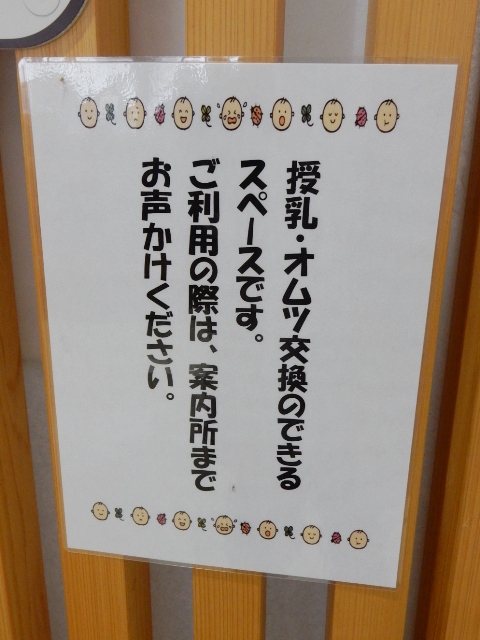 授乳・オムツ交換のできる
スペースです。
ご利用の際は、案内所まで
お声かけください。